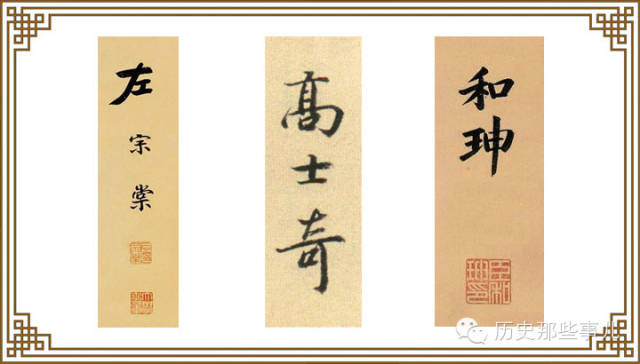 左宗棠
高士奇
和珅
历史那些事儿